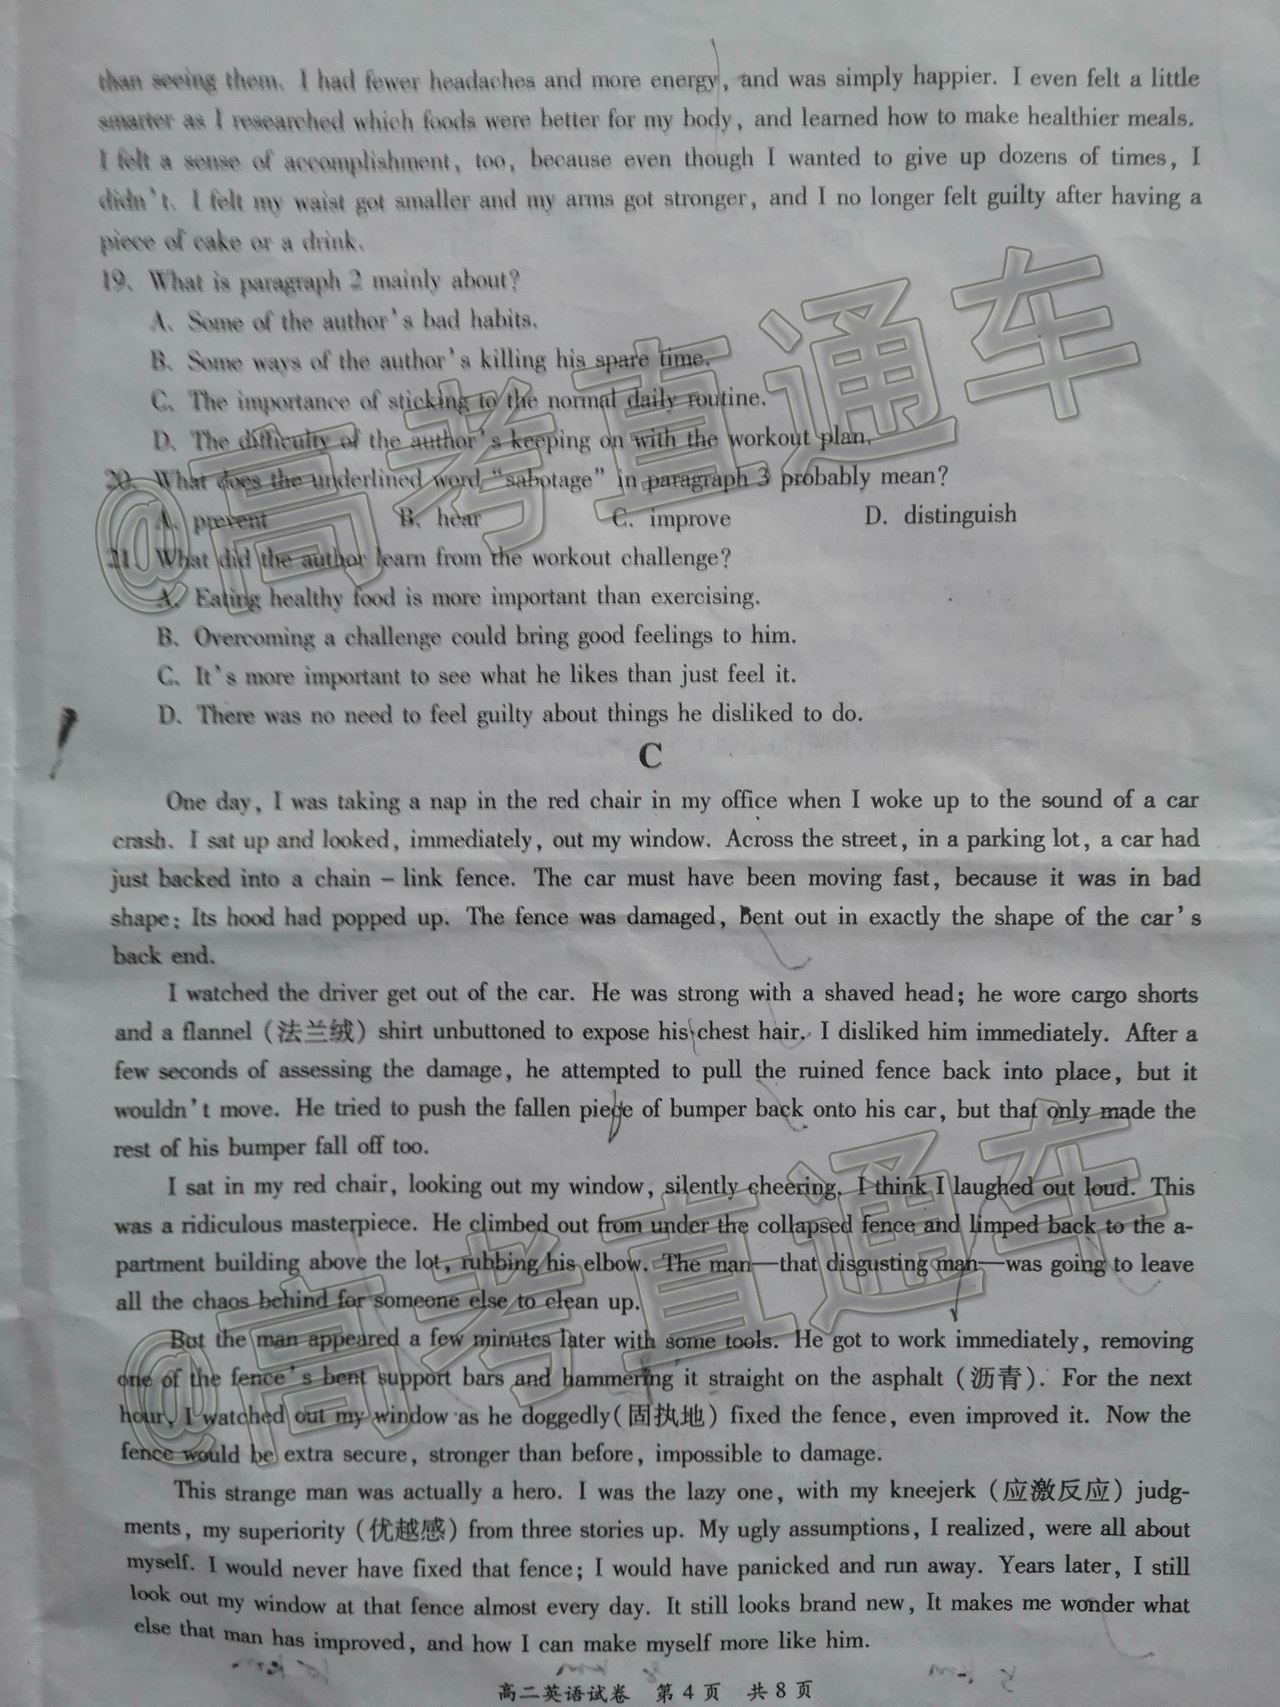 than seeing them. I had fewer headaches and more energy, and was simply happier. I even felt a little
smarter as I researched which foods were better for my body, and learned how to make healthier meals.
I felt a sense of accomplishment, too, because even though I wanted to give up dozens of times, I
didn't. I felt my waist got smaller and my arms got stronger, and I no longer felt guilty after having a
piece of cake or a drink.
19. What is paragraph 2 mainly about?
A. Some of the author's bad habits.
B. Some ways of the author's killing his spare time.
C. The importance of sticking to the normal daily routine.
D. The difficulty of the author's keeping on with the workout plan.
20. What does the underlined word "sabotage" in paragraph 3 probably mean?
A. prevent B. hear C. improve D. distinguish
21. What did the author learn from the workout challenge?
A. Eating healthy food is more important than exercising.
B. Overcoming a challenge could bring good feelings to him.
C. It's more important to see what he likes than just feel it.
D. There was no need to feel guilty about things he disliked to do.
C
One day, I was taking a nap in the red chair in my office when I woke up to the sound of a car
crash. I sat up and looked, immediately, out my window. Across the street, in a parking lot, a car had
just backed into a chain-link fence. The car must have been moving fast, because it was in bad
shape: Its hood had popped up. The fence was damaged, bent out in exactly the shape of the car's
back end.
I watched the driver get out of the car. He was strong with a shaved head; he wore cargo shorts
and a flannel (法兰绒) shirt unbuttoned to expose his chest hair. I disliked him immediately. After a
few seconds of assessing the damage, he attempted to pull the ruined fence back into place, but it
wouldn't move. He tried to push the fallen piece of bumper back onto his car, but that only made the
rest of his bumper fall off too.
I sat in my red chair, looking out my window, silently cheering. I think I laughed out loud. This
was a ridiculous masterpiece. He climbed out from under the collapsed fence and limped back to the a-
partment building above the lot, rubbing his elbow. The man—that disgusting man—was going to leave
all the chaos behind for someone else to clean up.
But the man appeared a few minutes later with some tools. He got to work immediately, removing
one of the fence's bent support bars and hammering it straight on the asphalt (沥青). For the next
hour, I watched out my window as he doggedly(固执地) fixed the fence, even improved it. Now the
fence would be extra secure, stronger than before, impossible to damage.
This strange man was actually a hero. I was the lazy one, with my kneejerk (应激反应) judg-
ments, my superiority (优越感) from three stories up. My ugly assumptions, I realized, were all about
myself. I would never have fixed that fence; I would have panicked and run away. Years later, I still
look out my window at that fence almost every day. It still looks brand new, It makes me wonder what
else that man has improved, and how I can make myself more like him.
高二英语试卷 第4页 共8页
@高考直通车
@高考直通车